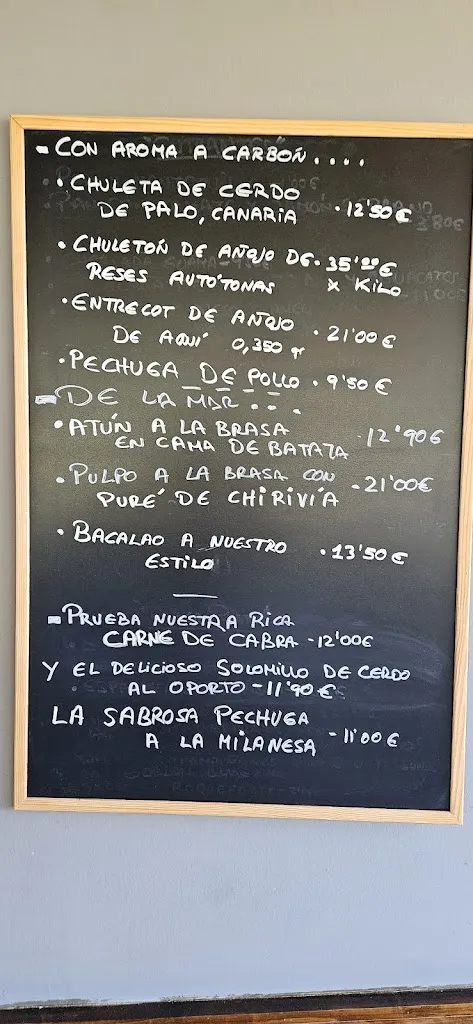 - CON AROMA A CARBÓN....
• CHULETA DE CERDO
DE PALO, CANARIA • 12'50 €
• CHULETÓN DE AÑOJO DE • 35'00 €
RESES AUTÓTONAS x KILO
• ENTRECOT DE AÑOJO
DE AQUÍ 0,350 gr • 21'00 €
• PECHUGA DE POLLO • 9'50 €
- DE LA MAR...
• ATÚN A LA BRASA
EN CAMA DE BATATA - 12'90€
• PULPO A LA BRASA CON
PURÉ DE CHIRIVÍA - 21'00€
• BACALAO A NUESTRO
ESTILO • 13'50 €
- PRUEBA NUESTRA RICA
CARNE DE CABRA - 12'00€
Y EL DELICIOSO SOLOMILLO DE CERDO
AL OPORTO - 11'90 €
LA SABROSA PECHUGA
A LA MILANESA - 11'00 €